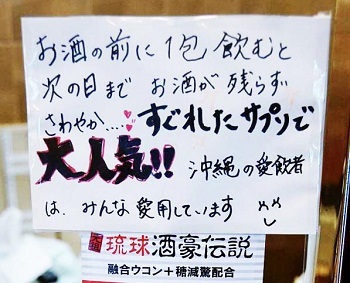 お酒の前に1包 飲むと
次の日まで お酒が 残らず
さわやか....すぐれしたサプリで
大人気!! 沖縄の愛飲者
は、みんな愛用しています
琉球酒豪伝説
融合ウコン+糖減驚配合